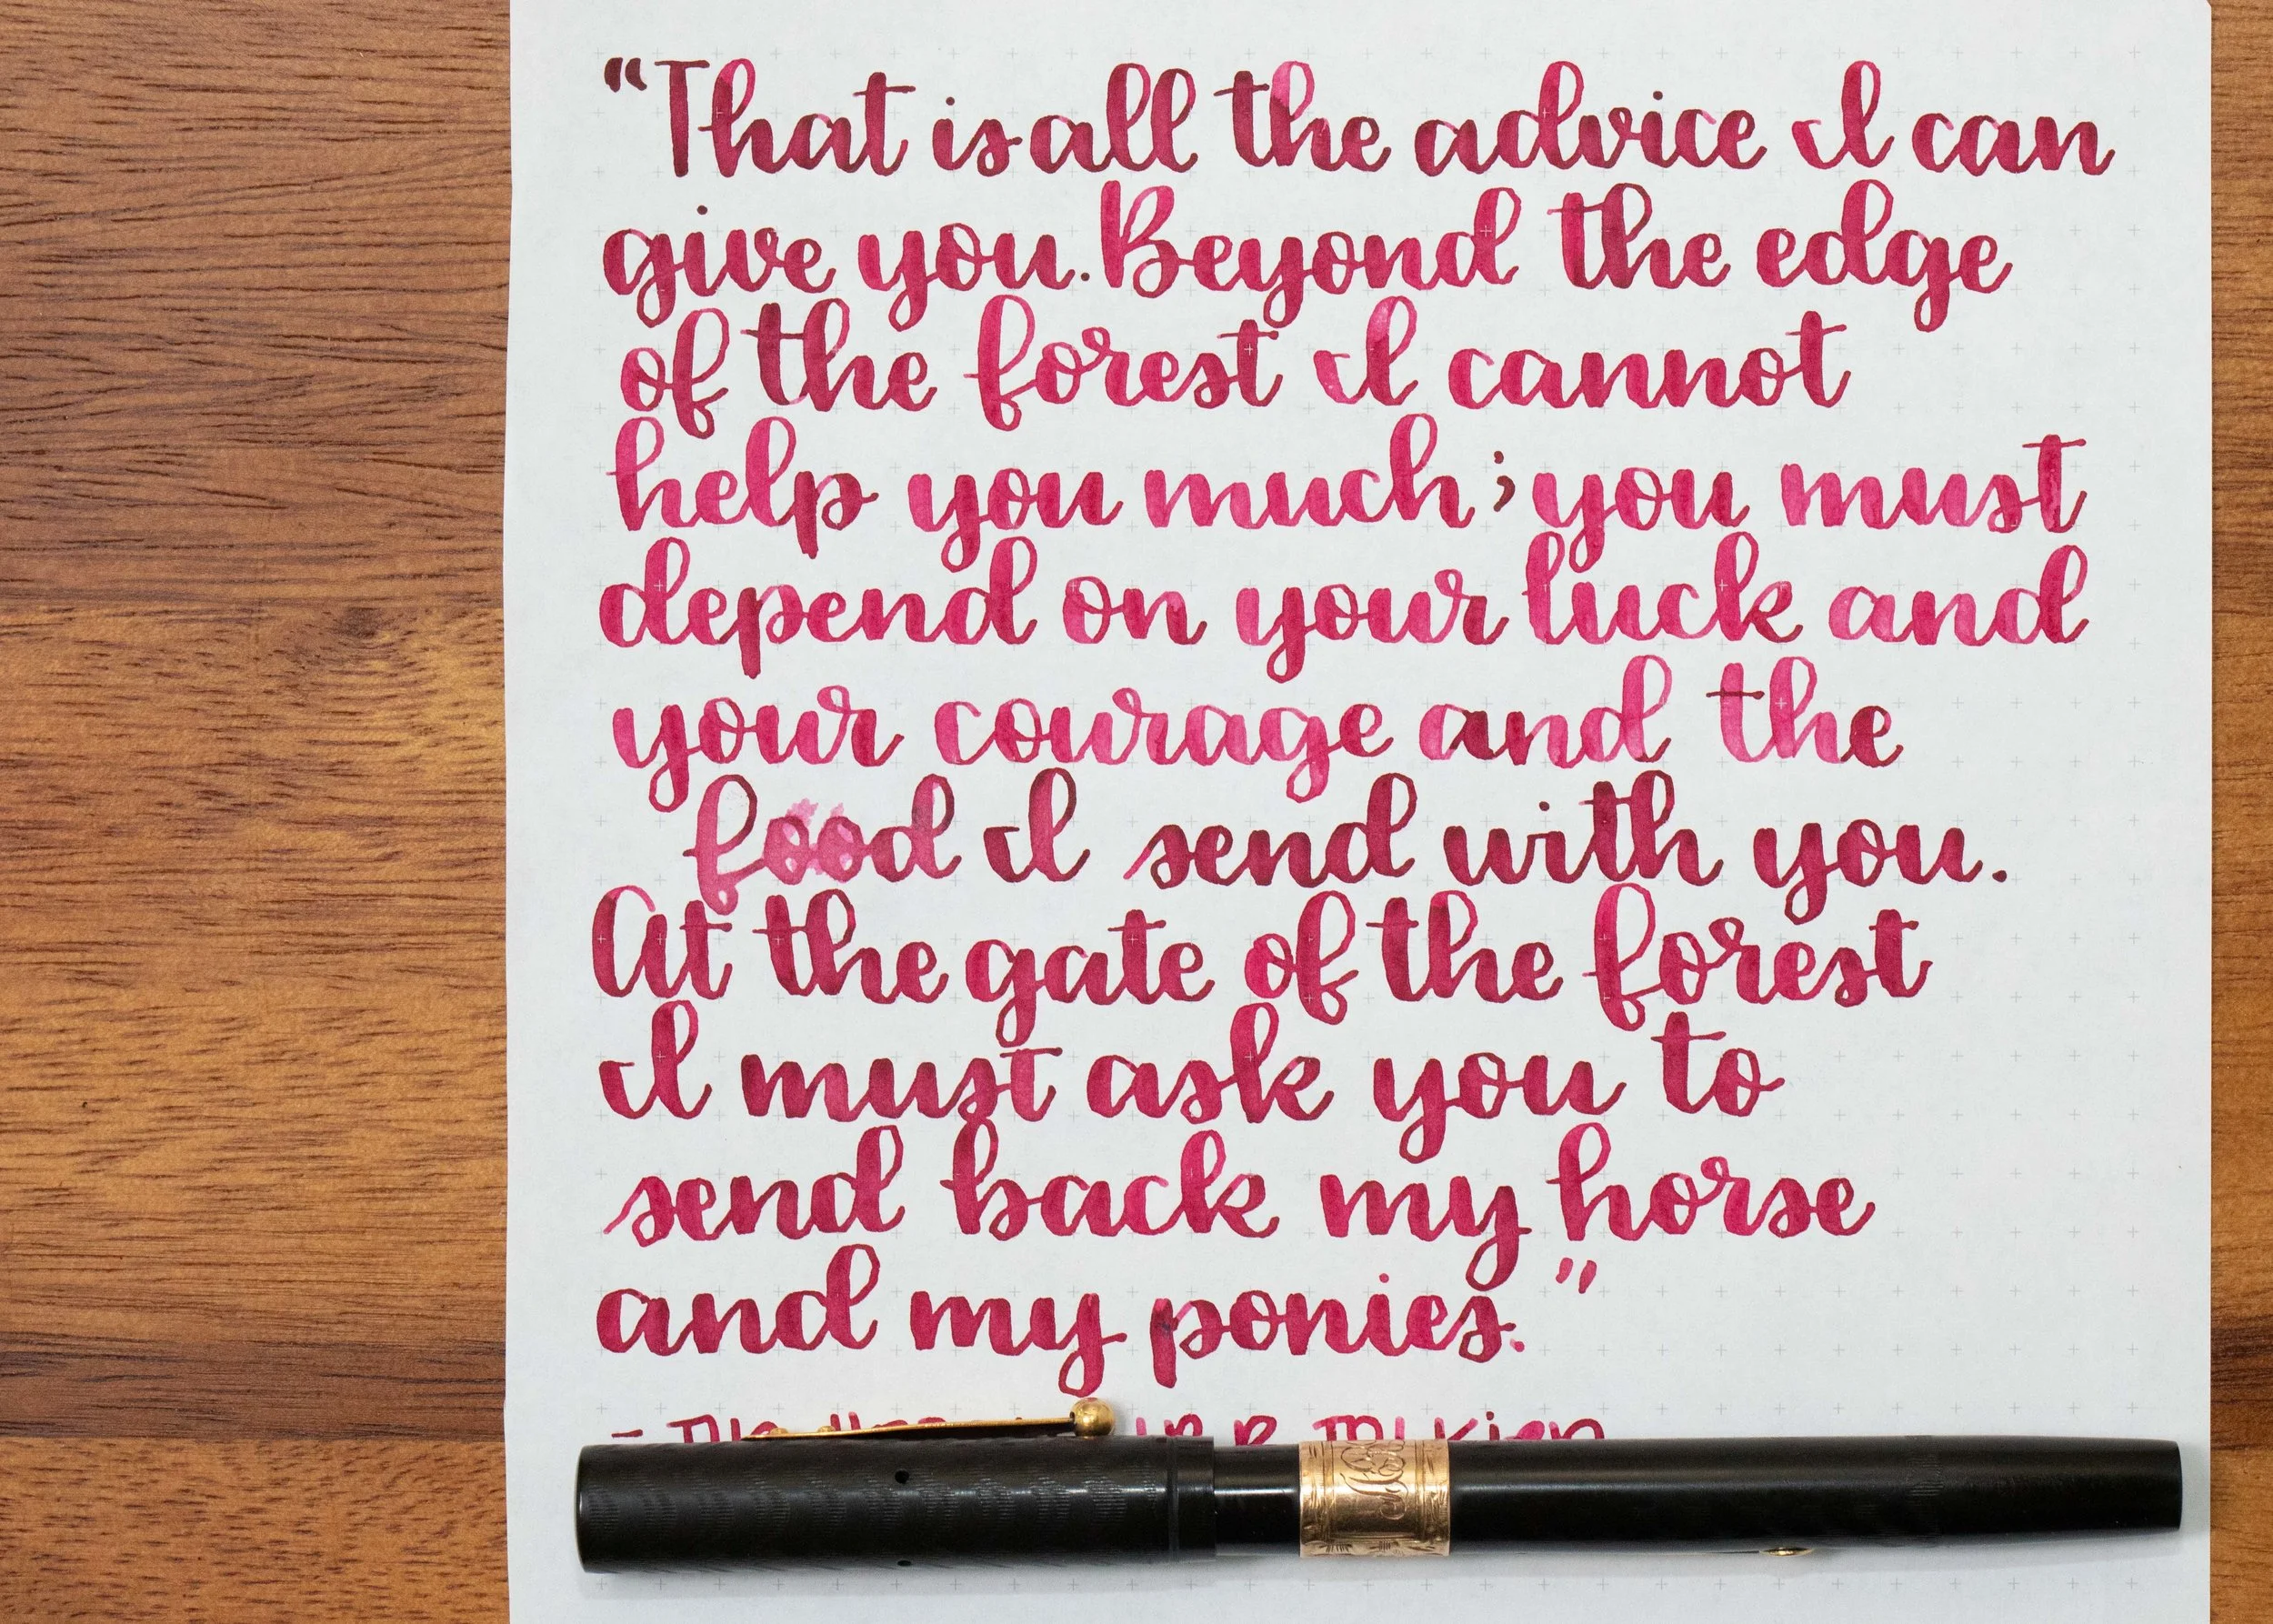 “That is all the advice I can
give you. Beyond the edge
of the forest I cannot
help you much; you must
depend on your luck and
your courage and the
food I send with you.
At the gate of the forest
I must ask you to
send back my horse
and my ponies.”